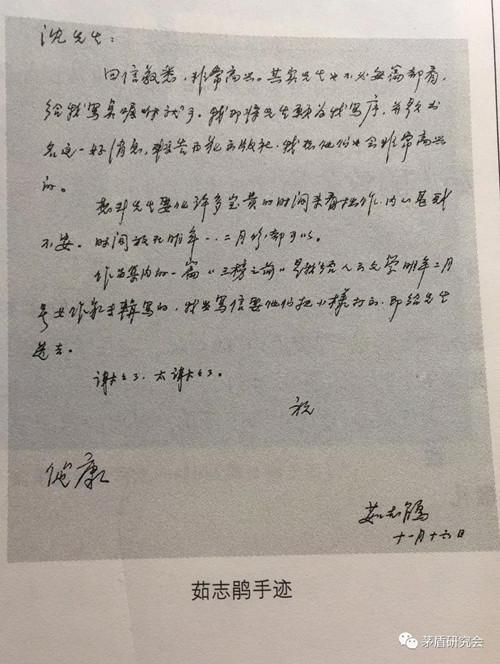 沈先生：
回信敬悉，非常高兴。其实先生也不必每篇都看，
给我写点就可了。我即将先生要为我写序，并题书
名这一好消息，转告百花出版社，我想他们也会非常高兴
的。
想到先生要化许多宝贵的时间来看拙作，内心甚感
不安。时间放在明年一、二月份都可以。
作品集内的一篇《三榜之前》是我给人民文学明年二月
号女作家专辑写的，我当写信要他们把小样打好，即给先生
送去。
谢谢了，太谢谢了。
祝
健康
茹志鹃
十一月十六日
茹志鹃手迹
茅盾研究会